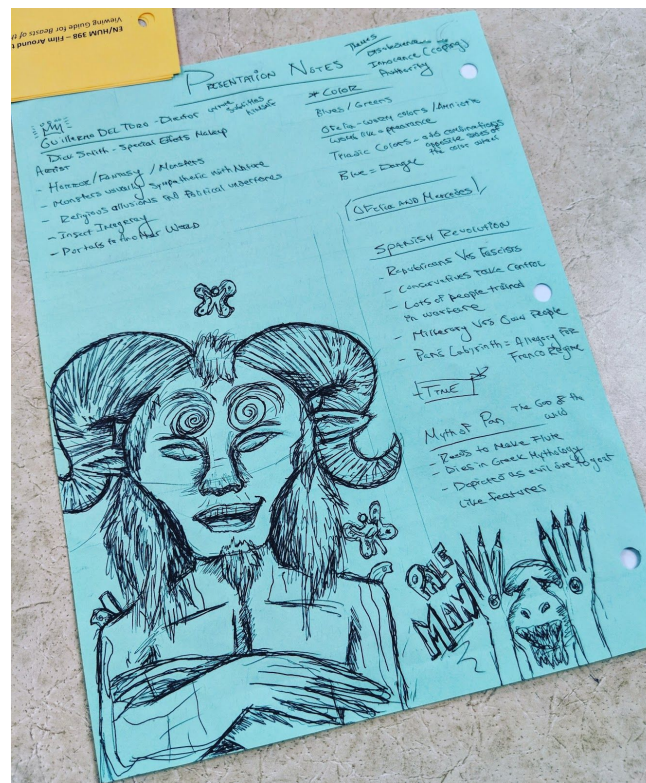 EN/HUM 398 – Film Around t
Viewing Guide for Beasts of th
PRESENTATION NOTES
Themes
Disobedience
Innocence (coping)
Authority
GUILLERMO DEL TORO - Director
writes subtitles himself
Dick Smith - Special Effects Makeup
Artist
- Horror / Fantasy / Monsters
- Monsters usually sympathetic with Nature
- Religious allusions and Political undertones
- Insect Imagery
- Portals to another World
* COLOR
Blues / Greens
Ofelia - warm colors / Ancient
world like appearance
Triadic Colors - odd combinations
opposite sides of
the color wheel
Blue = Danger
OFelia AND Mercedes
SPANISH REVOLUTION
- Republicans Vs Fascists
- Conservatives Take Control
- Lots of people trained
in warfare
- Military Vs Own People
- Pan's Labyrinth = Allegory For
Franco Regime
TIME
Myth of Pan The God of the
Wild
- Reeds to Make Flute
- Dies in Greek Mythology
- Depicted as evil due to goat
like features
PALE
MAN